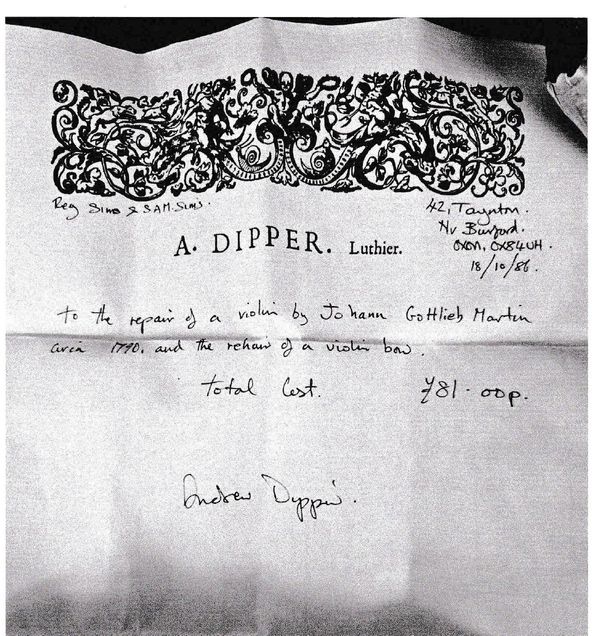 Reg Sims & SAM. Sims.
42, Taynton.
Nr Burford.
OXON, OX8 4UH.
18/10/86.
A. DIPPER. Luthier.
To the repair of a violin by Johann Gottlieb Martin
circa 1790. and the rehair of a violin bow.
Total Cost. £81-00p.
Andrew Dipper.